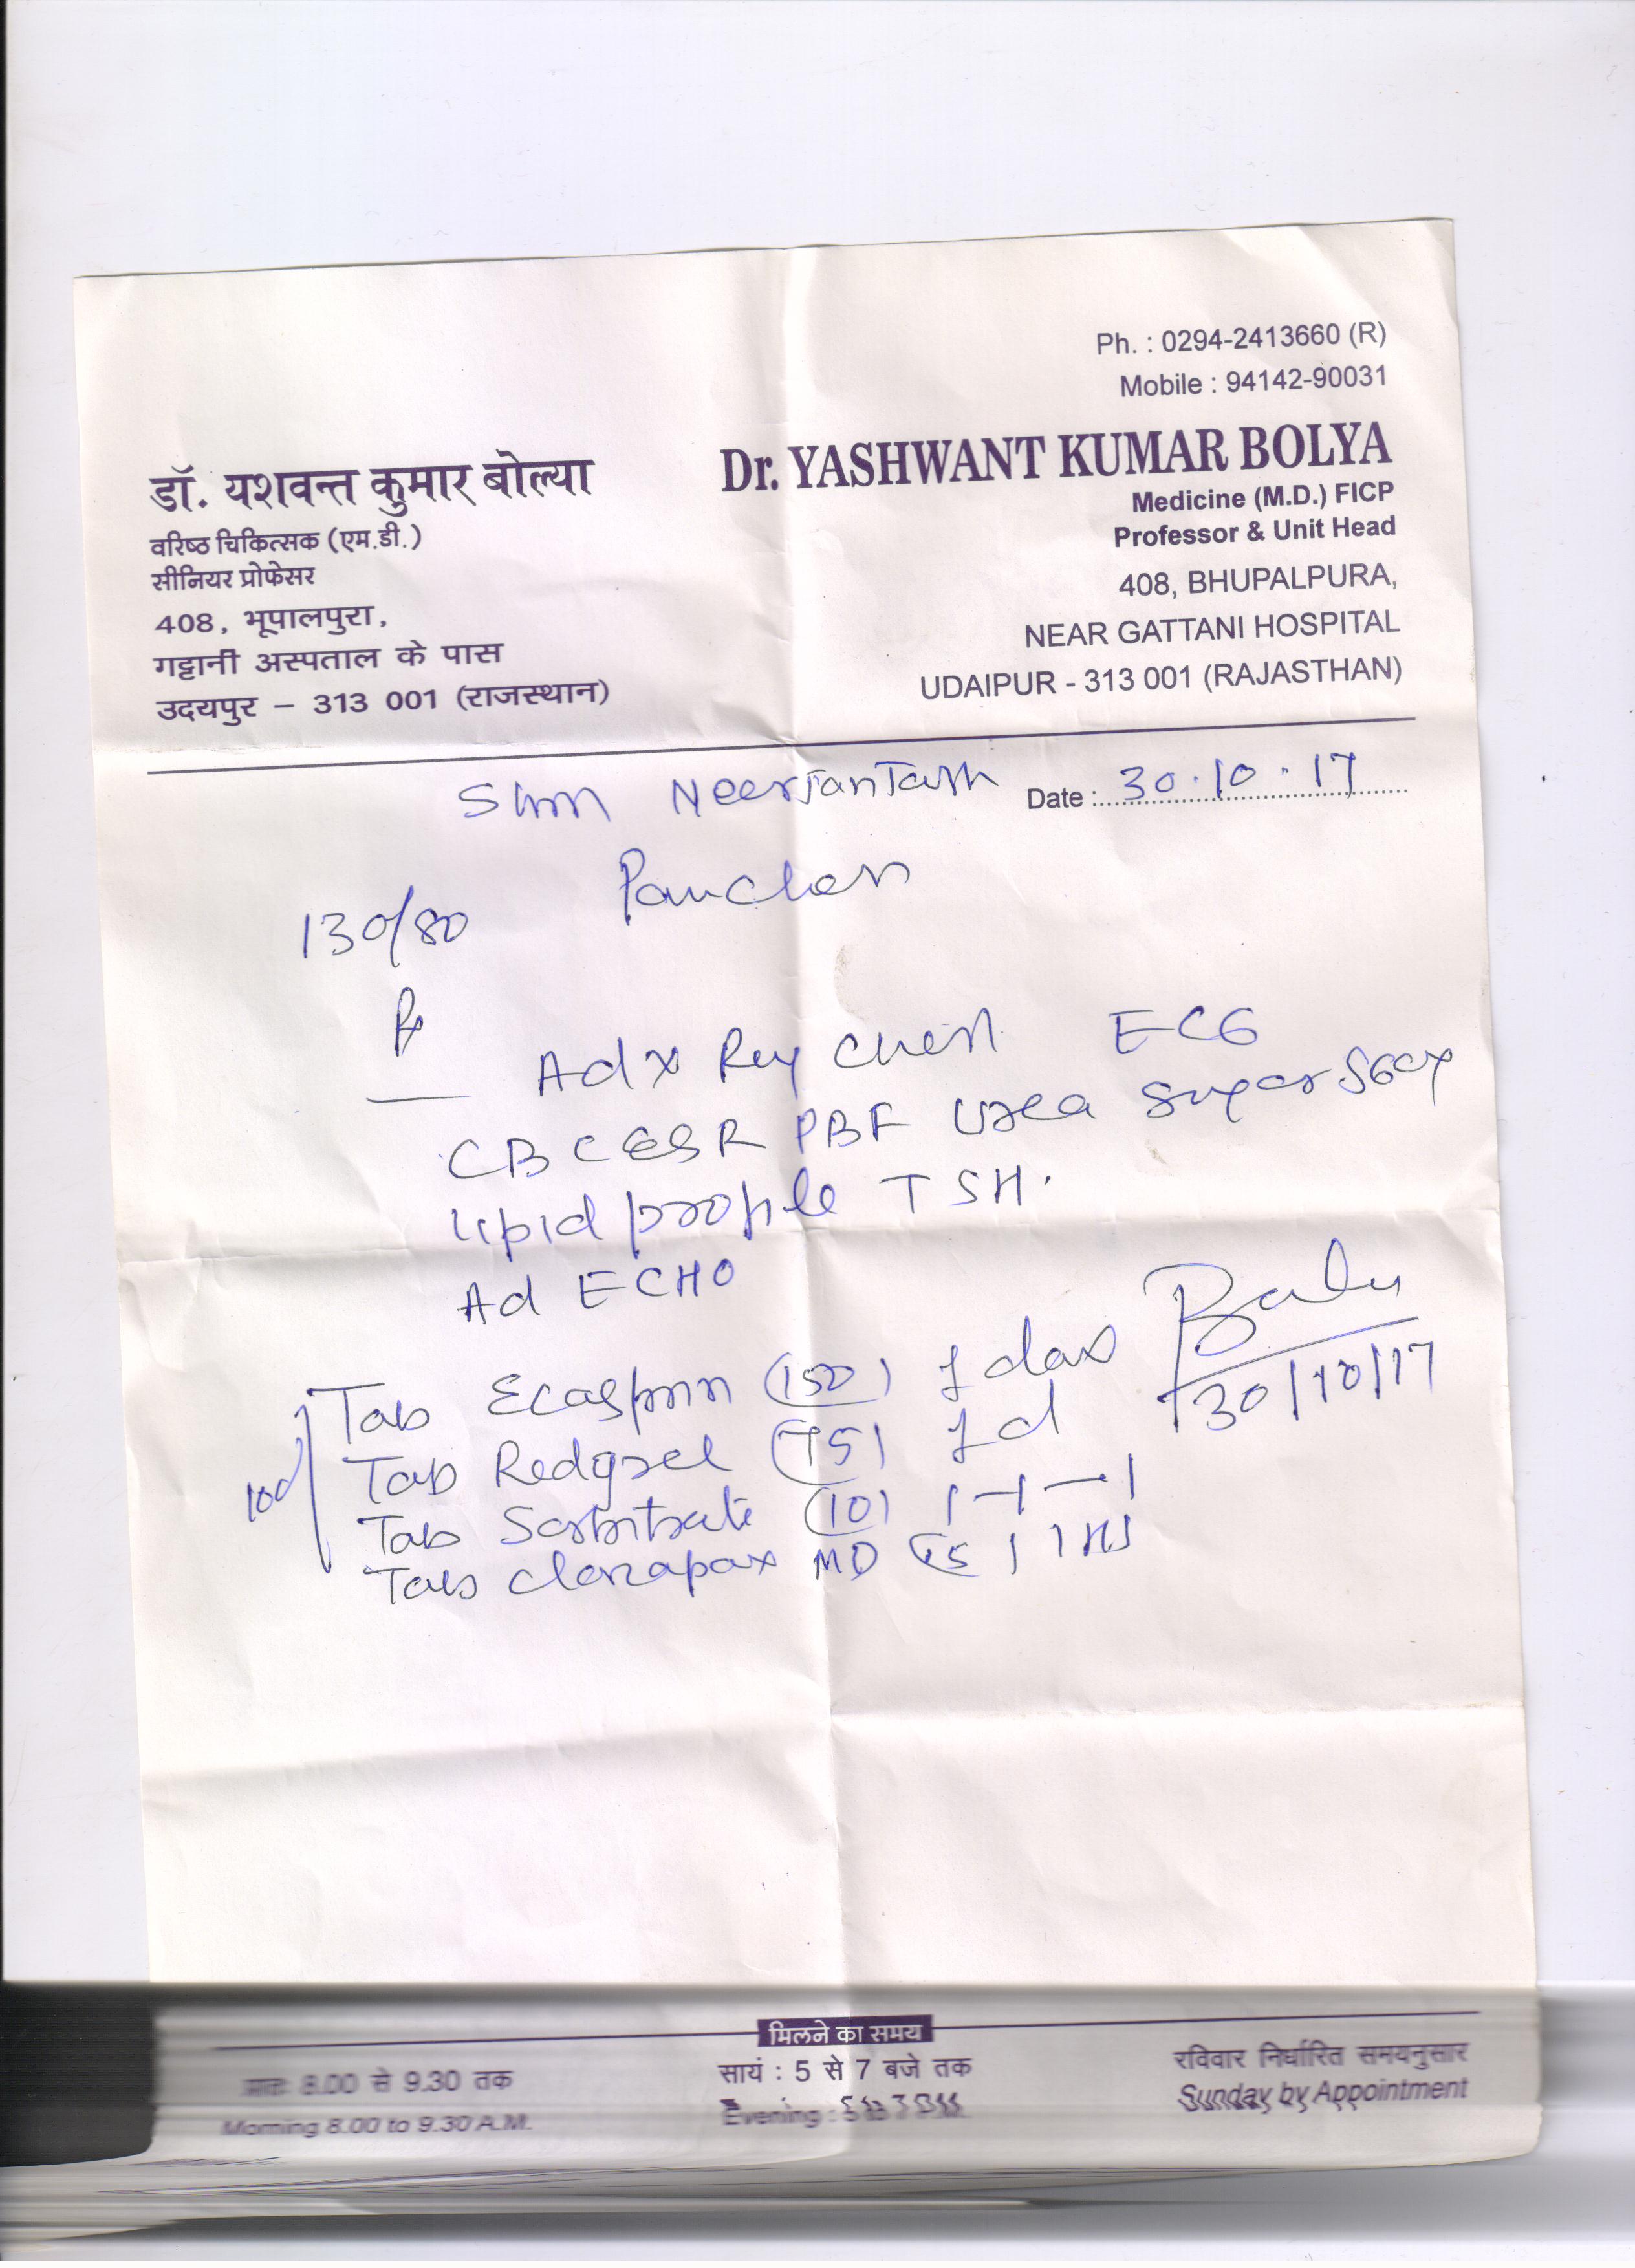 Ph. : 0294-2413660 (R)
Mobile : 94142-90031
डॉ. यशवन्त कुमार बोल्या
वरिष्ठ चिकित्सक (एम.डी.)
सीनियर प्रोफेसर
408, भूपालपुरा,
गट्टानी अस्पताल के पास
उदयपुर – 313 001 (राजस्थान)
Dr. YASHWANT KUMAR BOLYA
Medicine (M.D.) FICP
Professor & Unit Head
408, BHUPALPURA,
NEAR GATTANI HOSPITAL
UDAIPUR - 313 001 (RAJASTHAN)
Date : 30.10.17
130/80
Ad x Ray Chest ECG
CBC ESR PBF Urea Sugar
Lipid profile TSH.
Ad ECHO
Tab Ecasprin (150)
30/10/17
Tab (75)
Tab Sorbitrate (10) 1-1-1
Tab Clonapax MD 1 HS
10d
मिलने का समय
प्रातः 8.00 से 9.30 तक
Morning 8.00 to 9.30 A.M.
सायं : 5 से 7 बजे तक
Evening :
रविवार निर्धारित समयनुसार
Sunday by Appointment